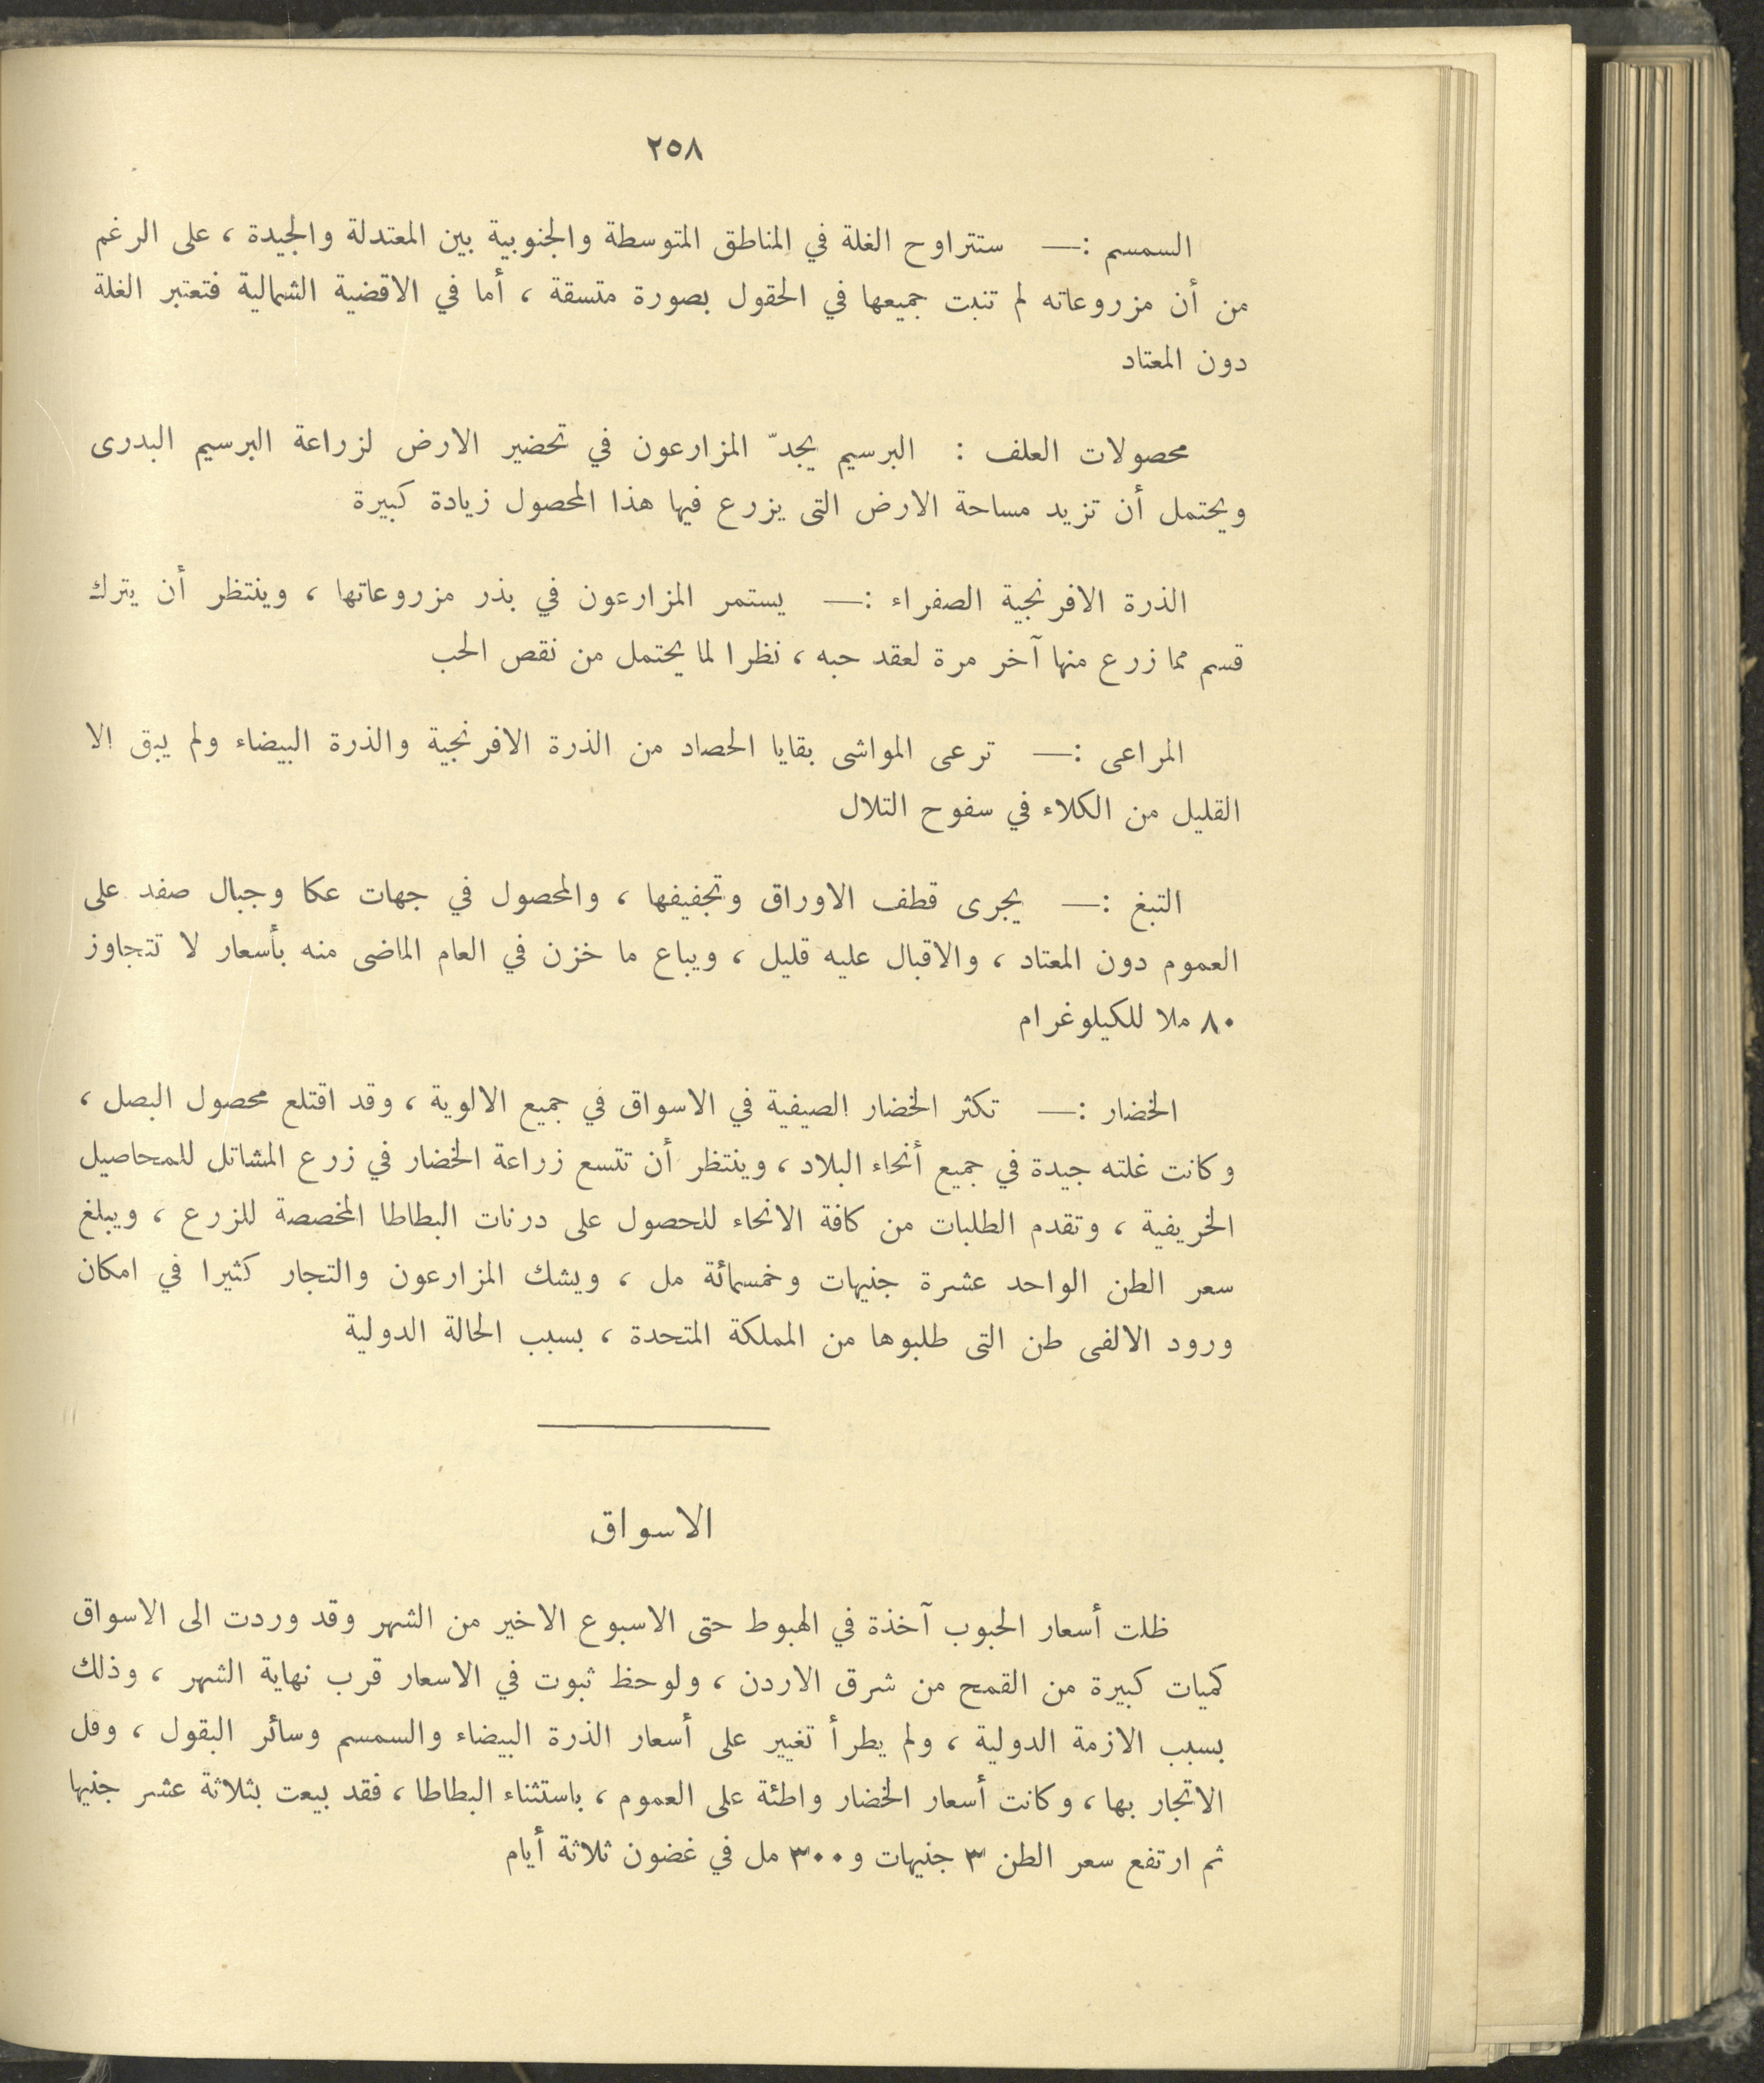 ٢٥٨
السمسم :— ستتراوح الغلة في المناطق المتوسطة والجنوبية بين المعتدلة والجيدة ، على الرغم
من أن مزروعاته لم تنبت جميعها في الحقول بصورة متسقة ، أما في الاقضية الشمالية فتعتبر الغلة
دون المعتاد
محصولات العلف : البرسيم يجدّ المزارعون في تحضير الارض لزراعة البرسيم البدرى
ويحتمل أن تزيد مساحة الارض التى يزرع فيها هذا المحصول زيادة كبيرة
الذرة الافرنجية الصفراء :— يستمر المزارعون في بذر مزروعاتها ، وينتظر أن يترك
قسم مما زرع منها آخر مرة لعقد حبه ، نظرا لما يحتمل من نقص الحب
المراعى :— ترعى المواشى بقايا الحصاد من الذرة الافرنجية والذرة البيضاء ولم يبق الا
القليل من الكلاء في سفوح التلال
التبغ :— يجرى قطف الاوراق وتجفيفها ، والمحصول في جهات عكا وجبال صفد على
العموم دون المعتاد ، والاقبال عليه قليل ، ويباع ما خزن في العام الماضى منه بأسعار لا تتجاوز
٨٠ ملا للكيلوغرام
الخضار :— تكثر الخضار الصيفية في الاسواق في جميع الالوية ، وقد اقتلع محصول البصل ،
وكانت غلته جيدة في جميع أنحاء البلاد ، وينتظر أن تتسع زراعة الخضار في زرع المشاتل للمحاصيل
الخريفية ، وتقدم الطلبات من كافة الانحاء للحصول على درنات البطاطا المخصصة للزرع ، ويبلغ
سعر الطن الواحد عشرة جنيهات وخمسمائة مل ، ويشك المزارعون والتجار كثيرا في امكان
ورود الالفى طن التى طلبوها من المملكة المتحدة ، بسبب الحالة الدولية
الاسواق
ظلت أسعار الحبوب آخذة في الهبوط حتى الاسبوع الاخير من الشهر وقد وردت الى الاسواق
كميات كبيرة من القمح من شرق الاردن ، ولوحظ ثبوت في الاسعار قرب نهاية الشهر ، وذلك
بسبب الازمة الدولية ، ولم يطرأ تغيير على أسعار الذرة البيضاء والسمسم وسائر البقول ، وقل
الاتجار بها ، وكانت أسعار الخضار واطئة على العموم ، باستثناء البطاطا ، فقد بيعت بثلاثة عشر جنيها
ثم ارتفع سعر الطن ٣ جنيهات و٣٠٠ مل في غضون ثلاثة أيام